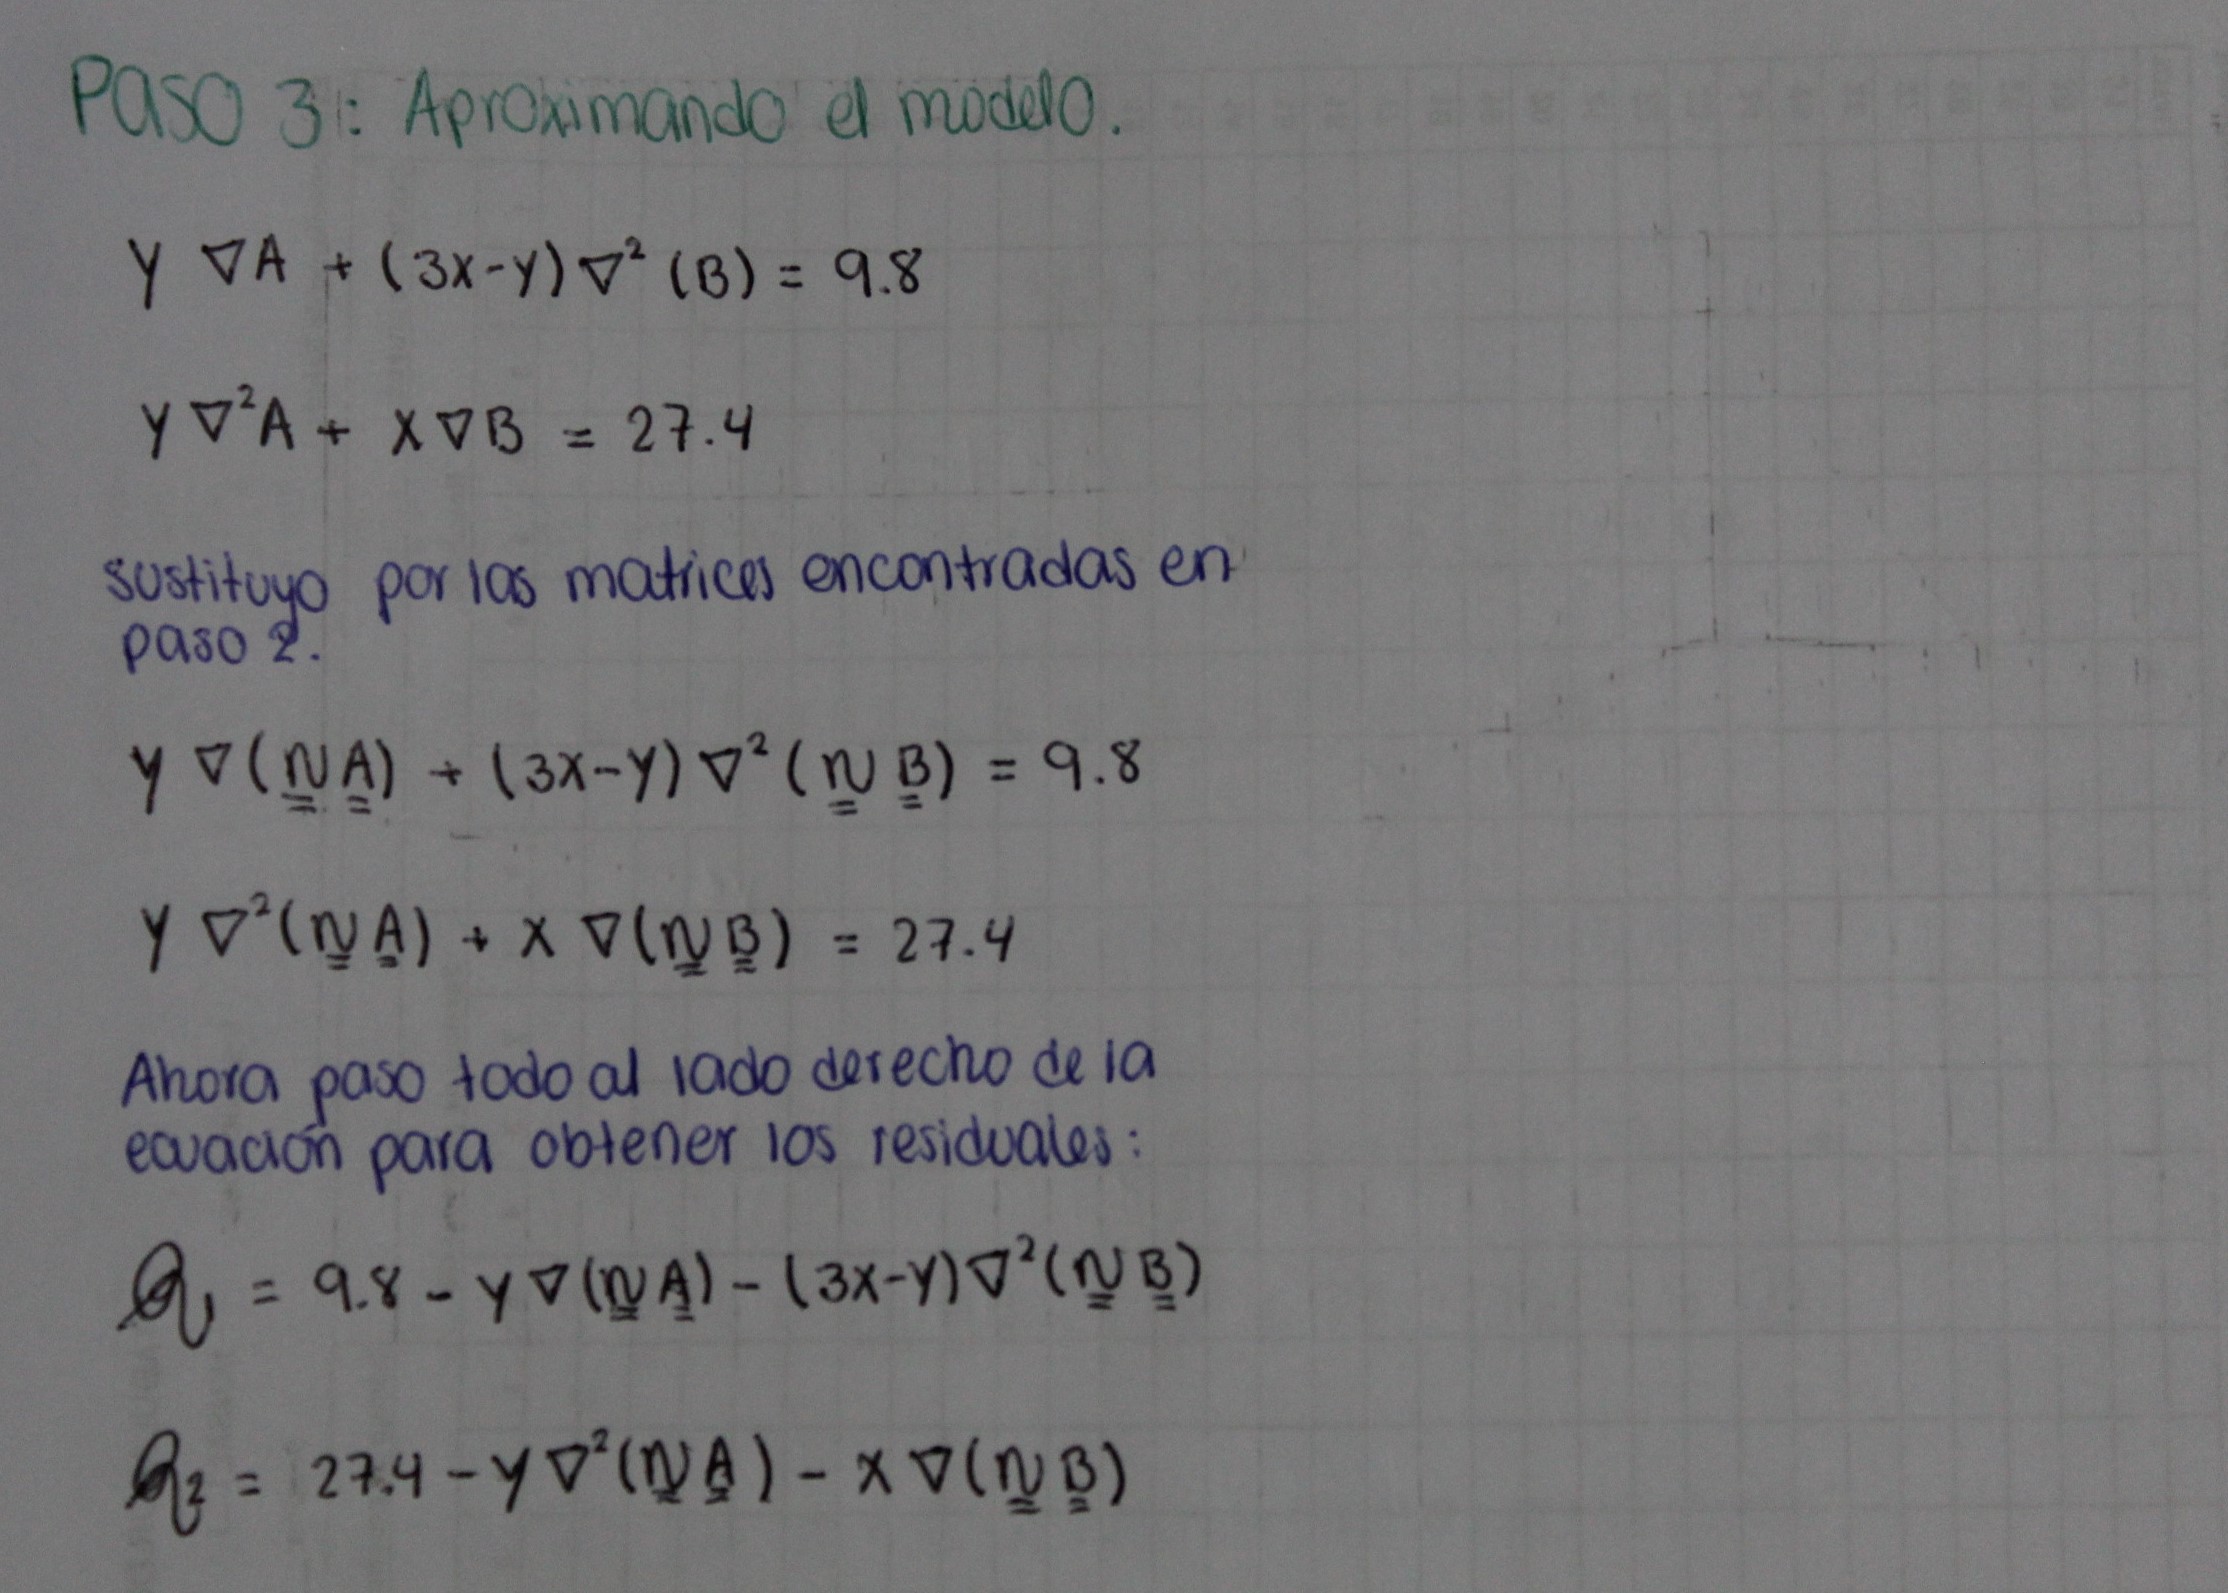 Paso 3: Aproximando el modelo.
y ∇A + (3x-y)∇² (B) = 9.8
y ∇²A + x∇B = 27.4
sustituyo por las matrices encontradas en
paso 2.
y ∇(N A) + (3x-y)∇²(N B) = 9.8
y ∇²(N A) + x ∇(N B) = 27.4
Ahora paso todo al lado derecho de la
ecuación para obtener los residuales:
R₁ = 9.8 - y∇(N A) - (3x-y)∇²(N B)
R₂ = 27.4 - y∇²(N A) - x∇(N B)